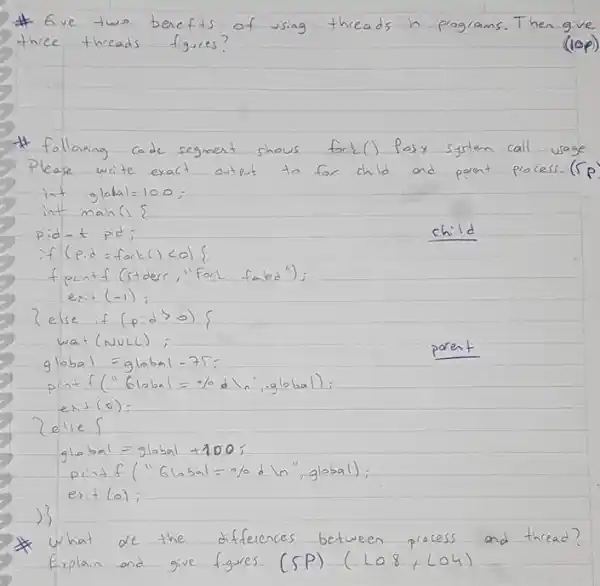 # Give two benefits of using threads in programs. Then give
three threads figures? (10p)
# following code segment shows fork() Posx system call usage
Please write exact output to for child and parent process. (5p)
int global=100;
int main() {
pid-t pid; child
if (pid = fork() <0) {
fprintf (stderr, "Fork failed");
exit (-1);
} else if (pid > 0) {
wait (NULL) ; parent
global = global - 75;
printf (" Global = % d \n", global);
exit (0);
} else {
global = global +100;
printf (" Global = % d \n", global);
exit (0);
}}
# What are the differences between process and thread?
Explain and give figures. (5P) (LO8, LO4)